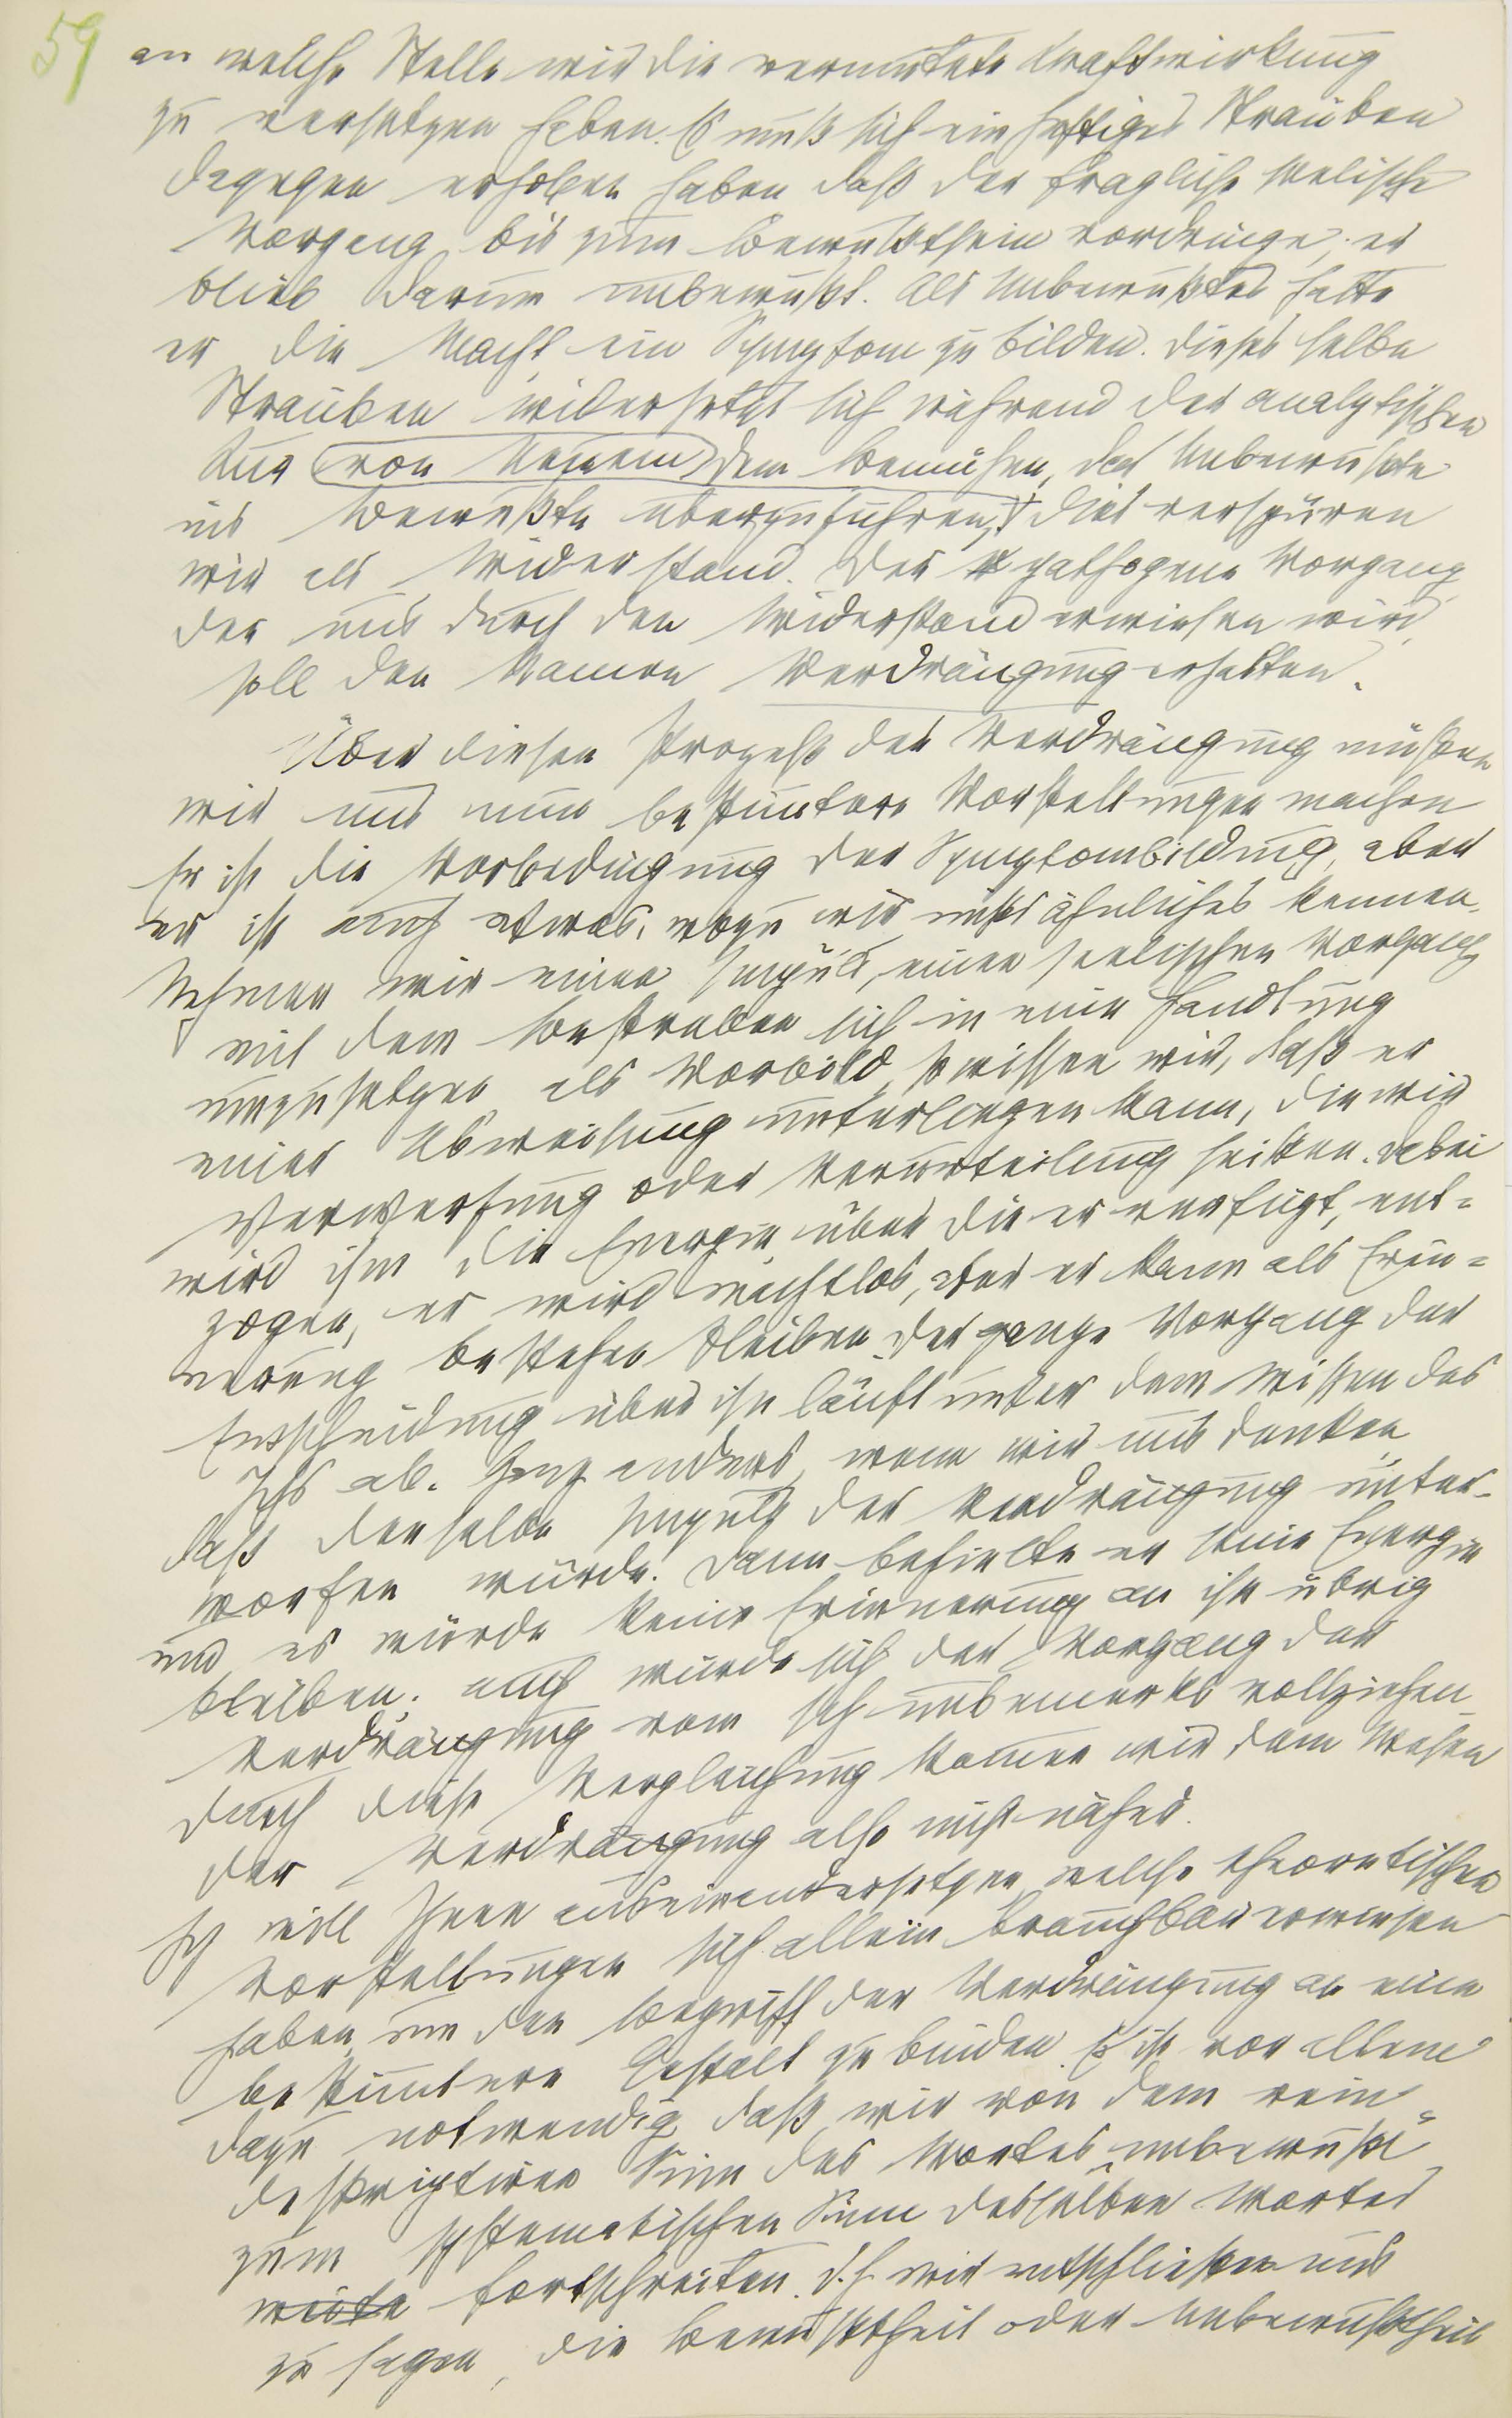 59
an welche Stelle wir die vermutete Kraftwirkung
zu versetzen haben. Es muß sich ein heftiges Sträuben
dagegen erhoben haben daß der fragliche seelische
Vorgang bis zum Bewußtsein vordringe; er
blieb darum unbewußt. Als Unbewußtes hatte
er die Macht ein Symptom zu bilden. Dieses selbe
Sträuben widersetzt sich während der analytischen
Kur von Neuem dem Bemühen, das Unbewußte
ins Bewußte überzuführen, dies verspüren
wir als Widerstand. Der pathogene Vorgang
der uns durch den Widerstand erwiesen wird,
soll den Namen Verdrängung erhalten.
Über diesen Prozeß der Verdrängung müssen
wir uns nun bestimtere Vorstellungen machen
Er ist die Vorbedingung der Symptombildung, aber
er ist auch etwas, wozu wir nichts ähnliches kennen.
Nehmen wir einen Impuls, einen seelischen Vorgang
mit dem Bestreben sich in eine Handlung
umzusetzen als Vorbild, so wissen wir, daß er
einer Abweisung unterliegen kann, die wir
Verwerfung oder Verurteilung heißen. Dabei
wird ihm die Energie über die er verfügt, ent-
zogen, er wird machtlos, aber er kann als Erin-
nerung bestehen bleiben. Der ganze Vorgang der
Entscheidung über ihn läuft unter dem Wissen des
Ichs ab. Ganz anders, wenn wir uns denken
daß derselbe Impuls der Verdrängung unter-
worfen würde. Dann behielte er seine Energie
und es würde keine Erinnerung an ihn übrig
bleiben; auch würde sich der Vorgang der
Verdrängung vom Ich unbemerkt vollziehen
Durch diese Vergleichung kommen wir dem Wesen
der Verdrängung also nicht näher.
Ich will Ihnen auseinandersetzen, welche theoretischen
Vorstellungen sich allein brauchbar erwiesen
haben, um den Begriff der Verdrängung an eine
bestimtere Gestalt zu binden. Es ist vor allem
dazu notwendig, daß wir von dem rein
deskriptiven Sinn des Wortes „unbewußt“
zum systematischen Sinn desselben Wortes
fortschreiten. d.h. wir entschließen uns
zu sagen, die Bewußtheit oder Unbewußtheit